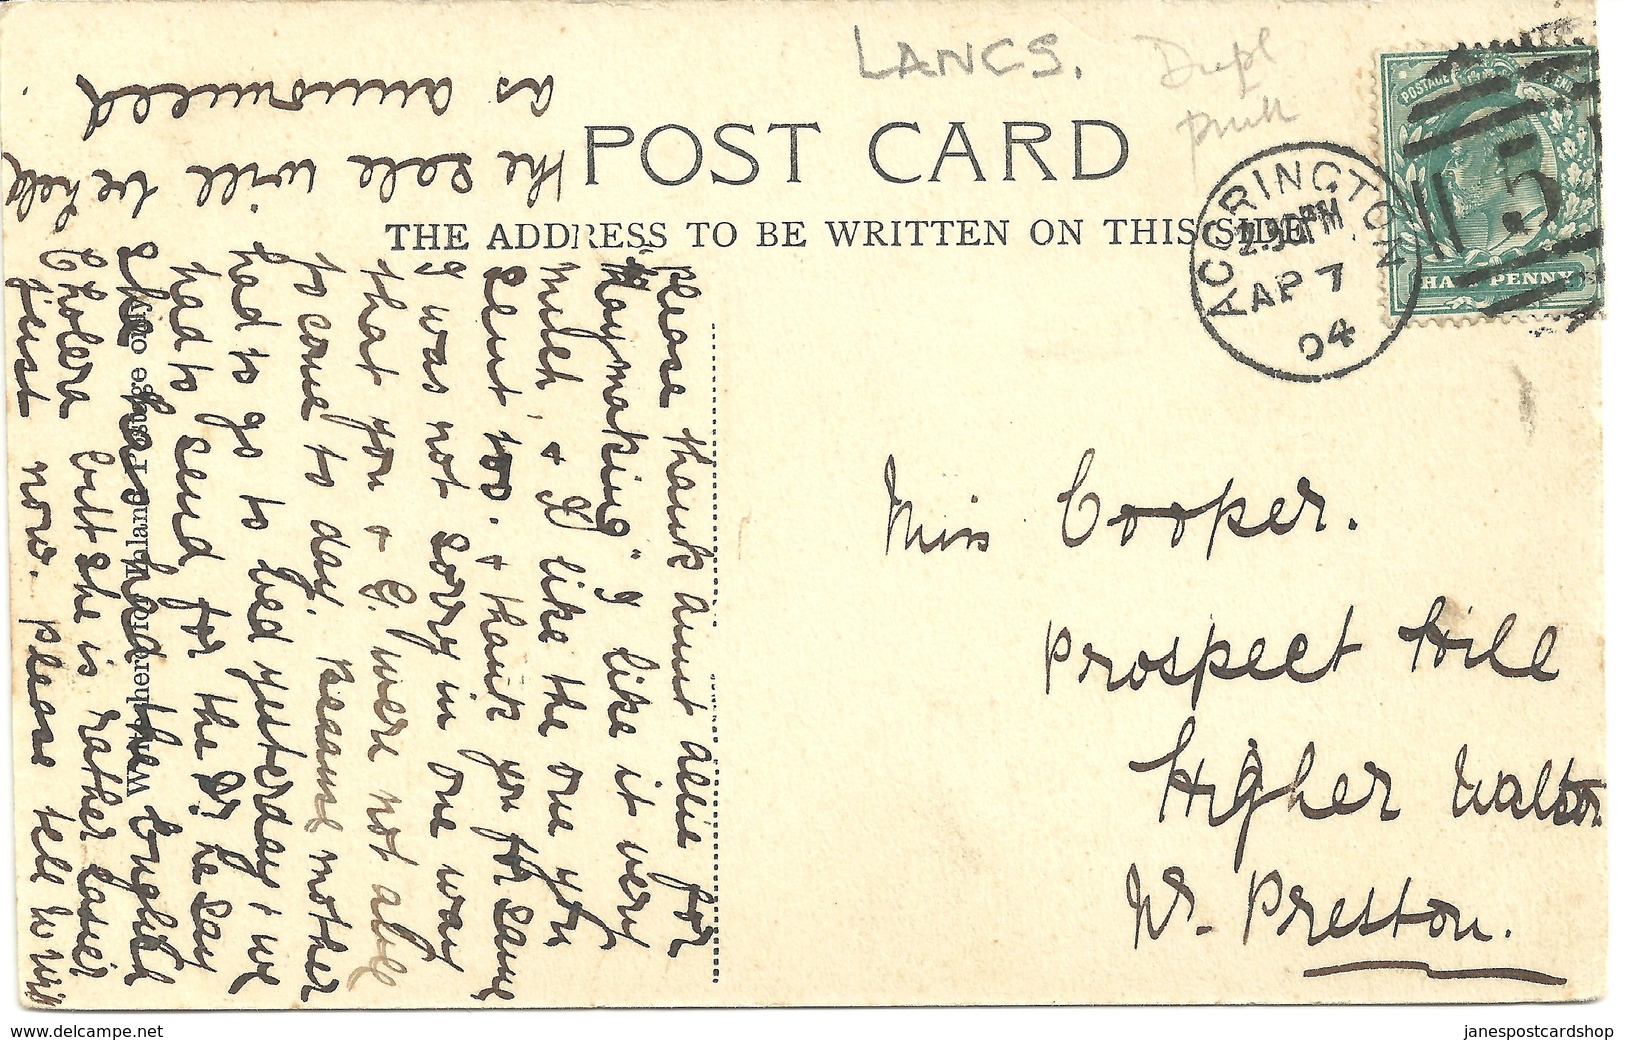 LANCS.
Dupl
POST CARD
THE ADDRESS TO BE WRITTEN ON THIS SIDE.
POSTAGE
HALF PENNY
5
ACCRINGTON
2.30PM
AP 7
04
Miss Cooper.
Prospect Hill
Higher Walton
Nr. Preston.
please thank aunt allie for
"Haymaking" I like it very
much, & I like the one you
sent too. & thank you for same
I was not sorry in one way
that you & G. were not able
to come to day. Because mother
had to go to bed yesterday, & we
had to send for the Dr. he say
she has had the English
Cholera but she is rather easier
just now. please tell Willie
the sale will be held
as announced.
When for Inland Postage only
janespostcardshop
www.delcampe.net